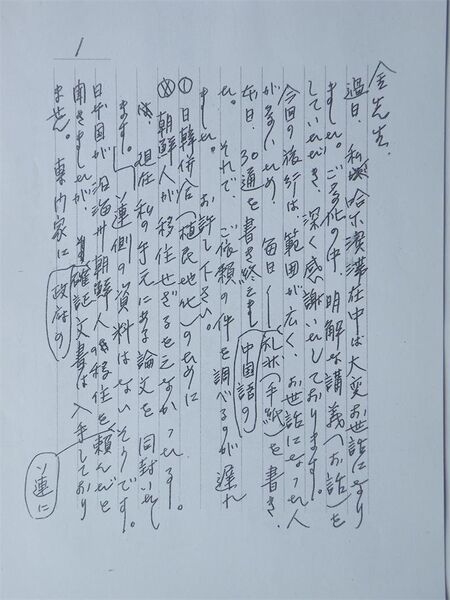 1
金先生、
過日、私が哈尓濱滞在中は大変お世話になり
ました。ご多忙の中、明解な講義(お話)を
していただき、深く感謝いたしております。
今回の旅行は範囲が広く、お世話になった人
が多いため、毎日 礼状(手紙)を書き、
中国語の
本日、30通を書き終えまし
た。それで、ご依頼の件を調べるのが遅れ
ました。お許し下さい。
①日韓併合(植民地化)のために
朝鮮人が移住せざるをえなかった。
は、現在私の手元にある論文を同封いたし
ます。ソ連側の資料はないそうです。
日本国が沿海州朝鮮人の移住を頼んだと
ソ連に
聞きましたが、確証文書は入手しており
政府の
ません。